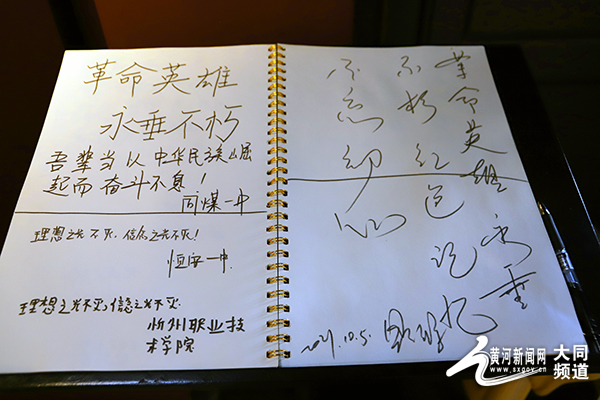 革命英雄
永垂不朽
吾辈当以中华民族崛
起而奋斗不息！
同煤一中
理想之光不灭，信念之光不灭！
恒安一中.
理想之光不灭，信念之光不灭.
忻州职业技
术学院
革命英雄永垂
不朽红色记忆
不忘初心
2021.10.5.
黄河新闻网
www.sxgov.cn
大同
频道